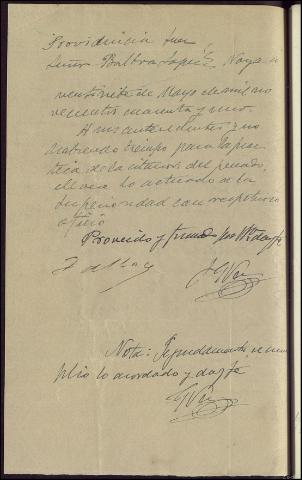 Providencia Juez
Señor Baltra Lopez Noya a
veintisiete de Mayo de mil no
vecientos cuarenta y uno.
A sus antecedentes y no
habiendo tiempo para la prac
tica de la citacion del penado,
elevese lo actuado a la
Superioridad con respetuoso
oficio
Proveido y firmado por SSª doy fe
Nota: Seguidamente se cum
plio lo acordado y doy fe